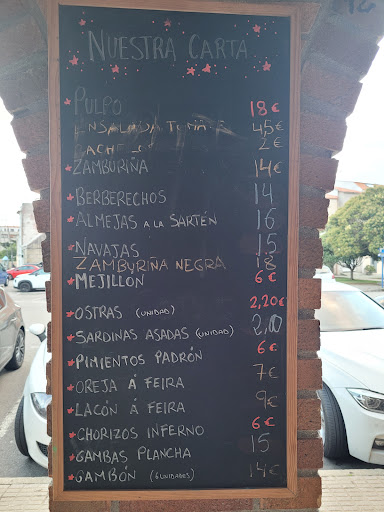 NUESTRA CARTA
PULPO 18€
ENSALADA TOMATE 45€
CACHELOS 2€
ZAMBURIÑA 14€
BERBERECHOS 14
ALMEJAS A LA SARTÉN 16
NAVAJAS 15
ZAMBURIÑA NEGRA 18
MEJILLON 6€
OSTRAS (UNIDAD) 2,20€
SARDINAS ASADAS (UNIDAD) 2,00
PIMIENTOS PADRÓN 6€
OREJA Á FEIRA 7€
LACÓN Á FEIRA 9€
CHORIZOS INFERNO 6€
GAMBAS PLANCHA 15
GAMBÓN (6 UNIDADES) 14€